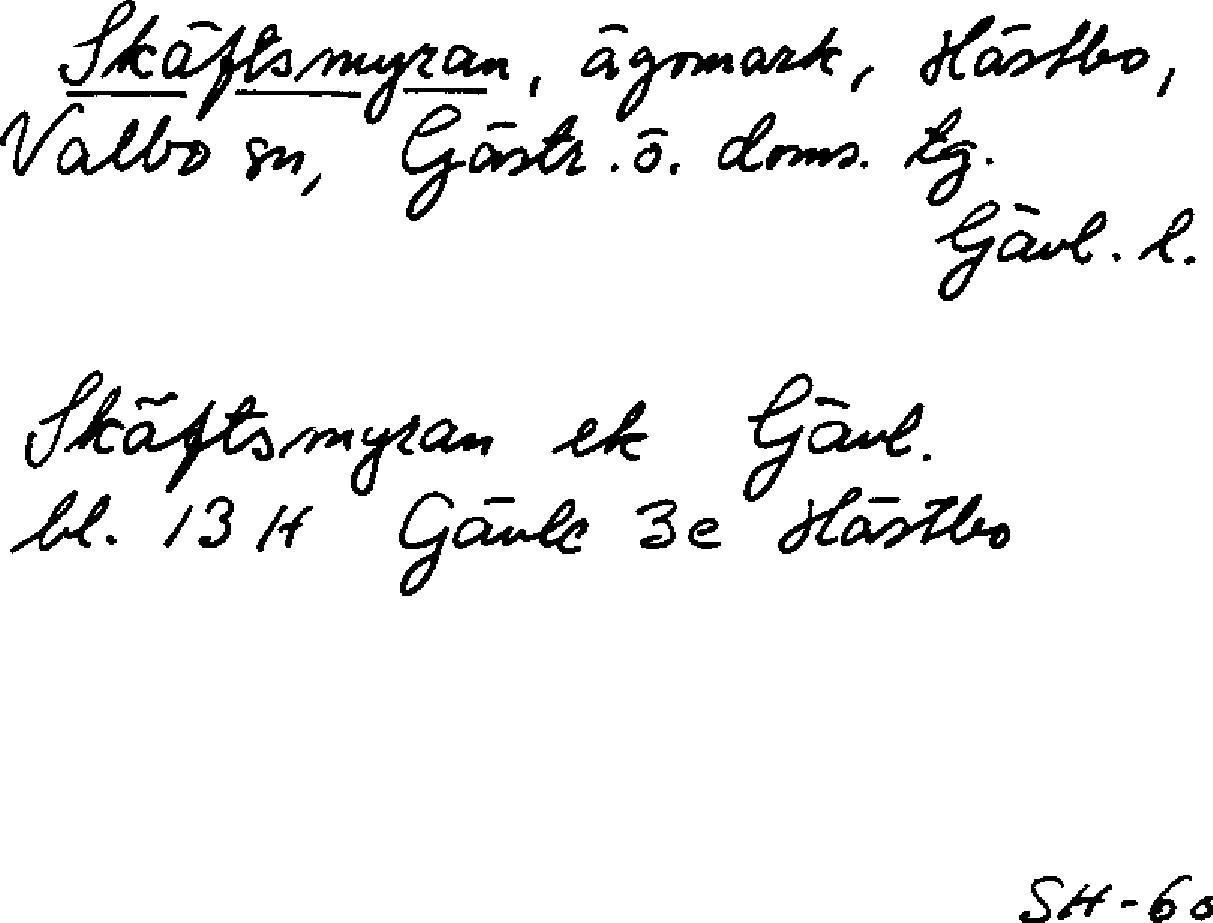 Skäftsmyran, ägomark, Hästbo,
Valbo sn, Gästr. ö. doms. tg.
Gävl. l.
Skäftsmyran ek Gävl.
bl. 13 H Gävle 3e Hästbo
SH-60